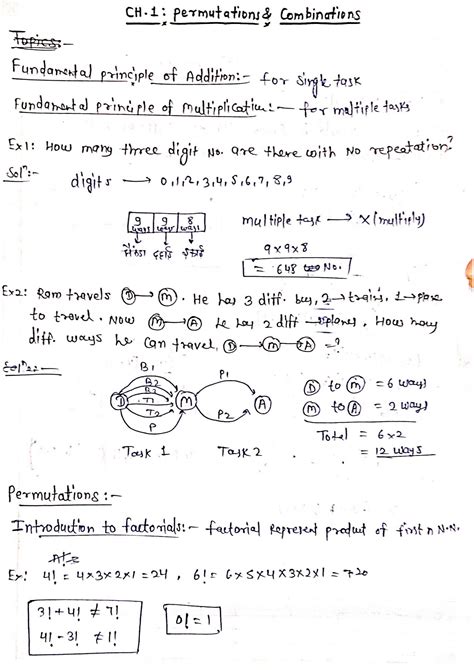 CH.1: Permutations & Combinations
Topics:-
Fundamental principle of Addition:- for single task
Fundamental principle of Multiplication:- for multiple tasks
Ex1: How many three digit No. are there with No repeatation?
Soln:- digits → 0,1,2,3,4,5,6,7,8,9
9 ways 9 ways 8 ways
multiple task → X (multiply)
सैकड़ा दहाई इकाई
9x9x8
= 648 No.
Ex2: Ram travels D→M. He has 3 diff. bus, 2→trains, 1→plane
to travel. Now M→A he has 2 diff planes. How many
diff. ways he can travel, D→M→A =?
Soln:-
B1 B2 B3 T1 T2 P
D M A
P1 P2
Task 1 Task 2
D to M = 6 ways
M to A = 2 ways
Total = 6x2
= 12 ways
Permutations:-
Introduction to factorials:- factorial represent product of first n N.N.
Ex: 4! = 4x3x2x1 = 24, 6! = 6x5x4x3x2x1 = 720
3!+4! ≠ 7!
4!-3! ≠ 1!
0! = 1